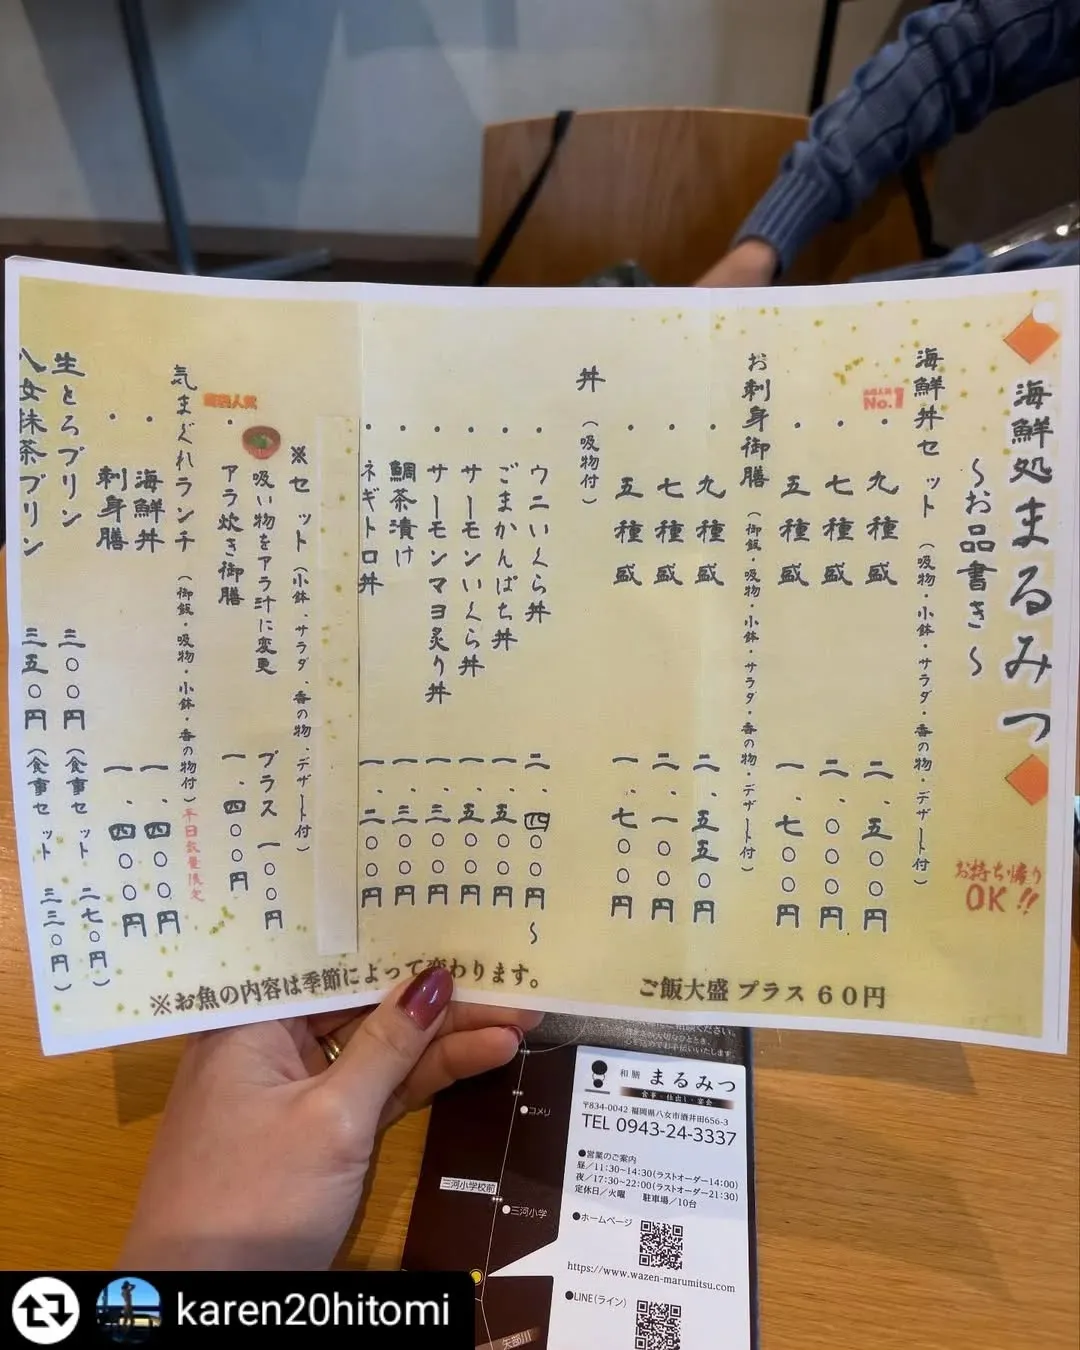 海鮮処まるみつ
～お品書き～
お持ち帰り
OK!!
海鮮丼セット（吸物・小鉢・サラダ・香の物・デザート付）
・九種盛 二、五〇〇円
No.1
・七種盛 二、〇〇〇円
・五種盛 一、七〇〇円
お刺身御膳（御飯・吸物・小鉢・サラダ・香の物・デザート付）
・九種盛 二、五五〇円
・七種盛 二、一〇〇円
・五種盛 一、七〇〇円
丼（吸物付）
・ウニいくら丼 二、四〇〇円～
・ごまかんぱち丼 一、五〇〇円
・サーモンいくら丼 一、五〇〇円
・サーモンマヨ炙り丼 一、三〇〇円
・鯛茶漬け 一、三〇〇円
・ネギトロ丼 一、二〇〇円
※セット（小鉢、サラダ、香の物、デザート付）
吸い物をアラ汁に変更 プラス一〇〇円
・アラ炊き御膳 一、四〇〇円
気まぐれランチ（御飯・吸物・小鉢・香の物付）平日数量限定
・海鮮丼 一、四〇〇円
・刺身膳 一、四〇〇円
生とろプリン 三〇〇円（食事セット 二七〇円）
八女抹茶プリン 三五〇円（食事セット 三三〇円）
ご飯大盛 プラス６０円
※お魚の内容は季節によって変わります。
和膳 まるみつ
食事・仕出し・宴会
〒834-0042 福岡県八女市酒井田656-3
TEL 0943-24-3337
●営業のご案内
昼／11:30~14:30(ラストオーダー14:00)
夜／17:30~22:00(ラストオーダー21:30)
定休日／火曜 駐車場／10台
●ホームページ
https://www.wazen-marumitsu.com
●LINE(ライン)
コメリ
三河小学校前
三河小学
矢部川
karen20hitomi